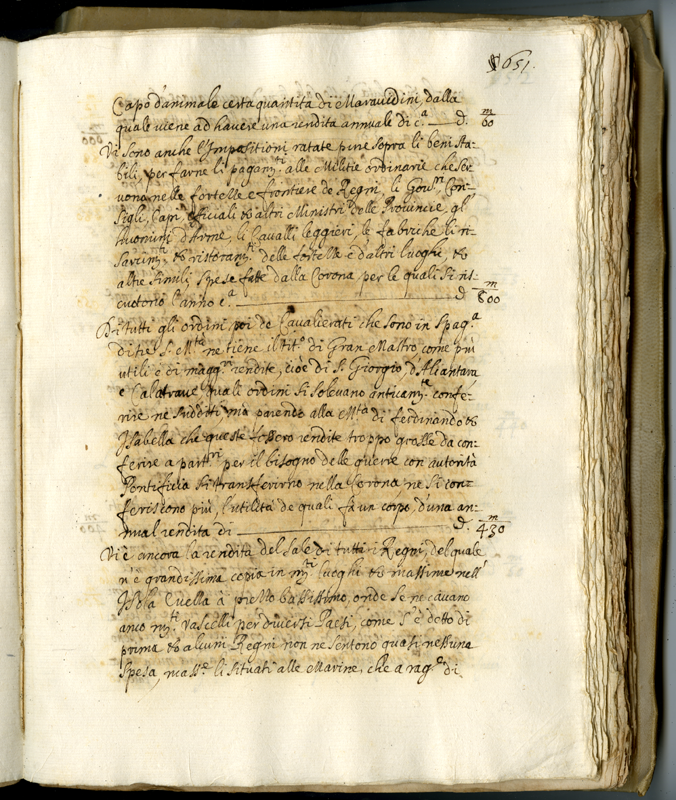 651.
Capo d'animale certa quantità di Maravidini, dalla
quale viene ad havere una rendita annuale di c.ª d. m/60
Vi sono anche l'Impositioni ratate pure sopra li beni sta-
bili, per farne li pagam.ti alle Militie ordinarie che ser-
vono nelle fortezze e frontiere de Regni, li Gov.ri Con-
sigli, Capi officiali et altri Ministri delle Provincie, gl'
Huomini d'Arme, li Cavalli leggieri, le fabriche li ri-
sarcim.ti et ristoram.ti delle fortezze e d'altri luoghi, et
altre simili spese fatte dalla Corona per le quali si ris-
cuotono l'anno c.ª d. m/800
Di tutti gli ordini poi de Cavalierati che sono in Spag.ª
di tre S. M.tà ne tiene il tit.º di Gran Mastro come più
utili e di magg.ri rendite, cioè di S. Giorgio, d'Alcantara
e Calatrava quale ordini si solevano anticam.te confe-
rire ne sudditi, ma parendo alla M.tà di ferdinando et
Isabella che queste fossero rendite troppo grosse da con-
ferire a part.ri per il bisogno delle guerre con autorità
Pontificia si transferirno nella Corona ne si con-
feriscono più, l'utilità de quali fà un corpo d'una an-
nual rendita di d. m/430
Vi è ancora la rendita del Sale di tutta i Regni, del quale
n'è grandissima copia in m.ti luoghi et massime nell'
Isola Evella à prezzo bassissimo, onde se ne cavano
anco m.ti vascelli per diversi Paesi, come s'è detto di
prima et alcuni Regni non ne sentono quasi nessuna
spesa, mass.e li situati alle Marine, che a rag.e di